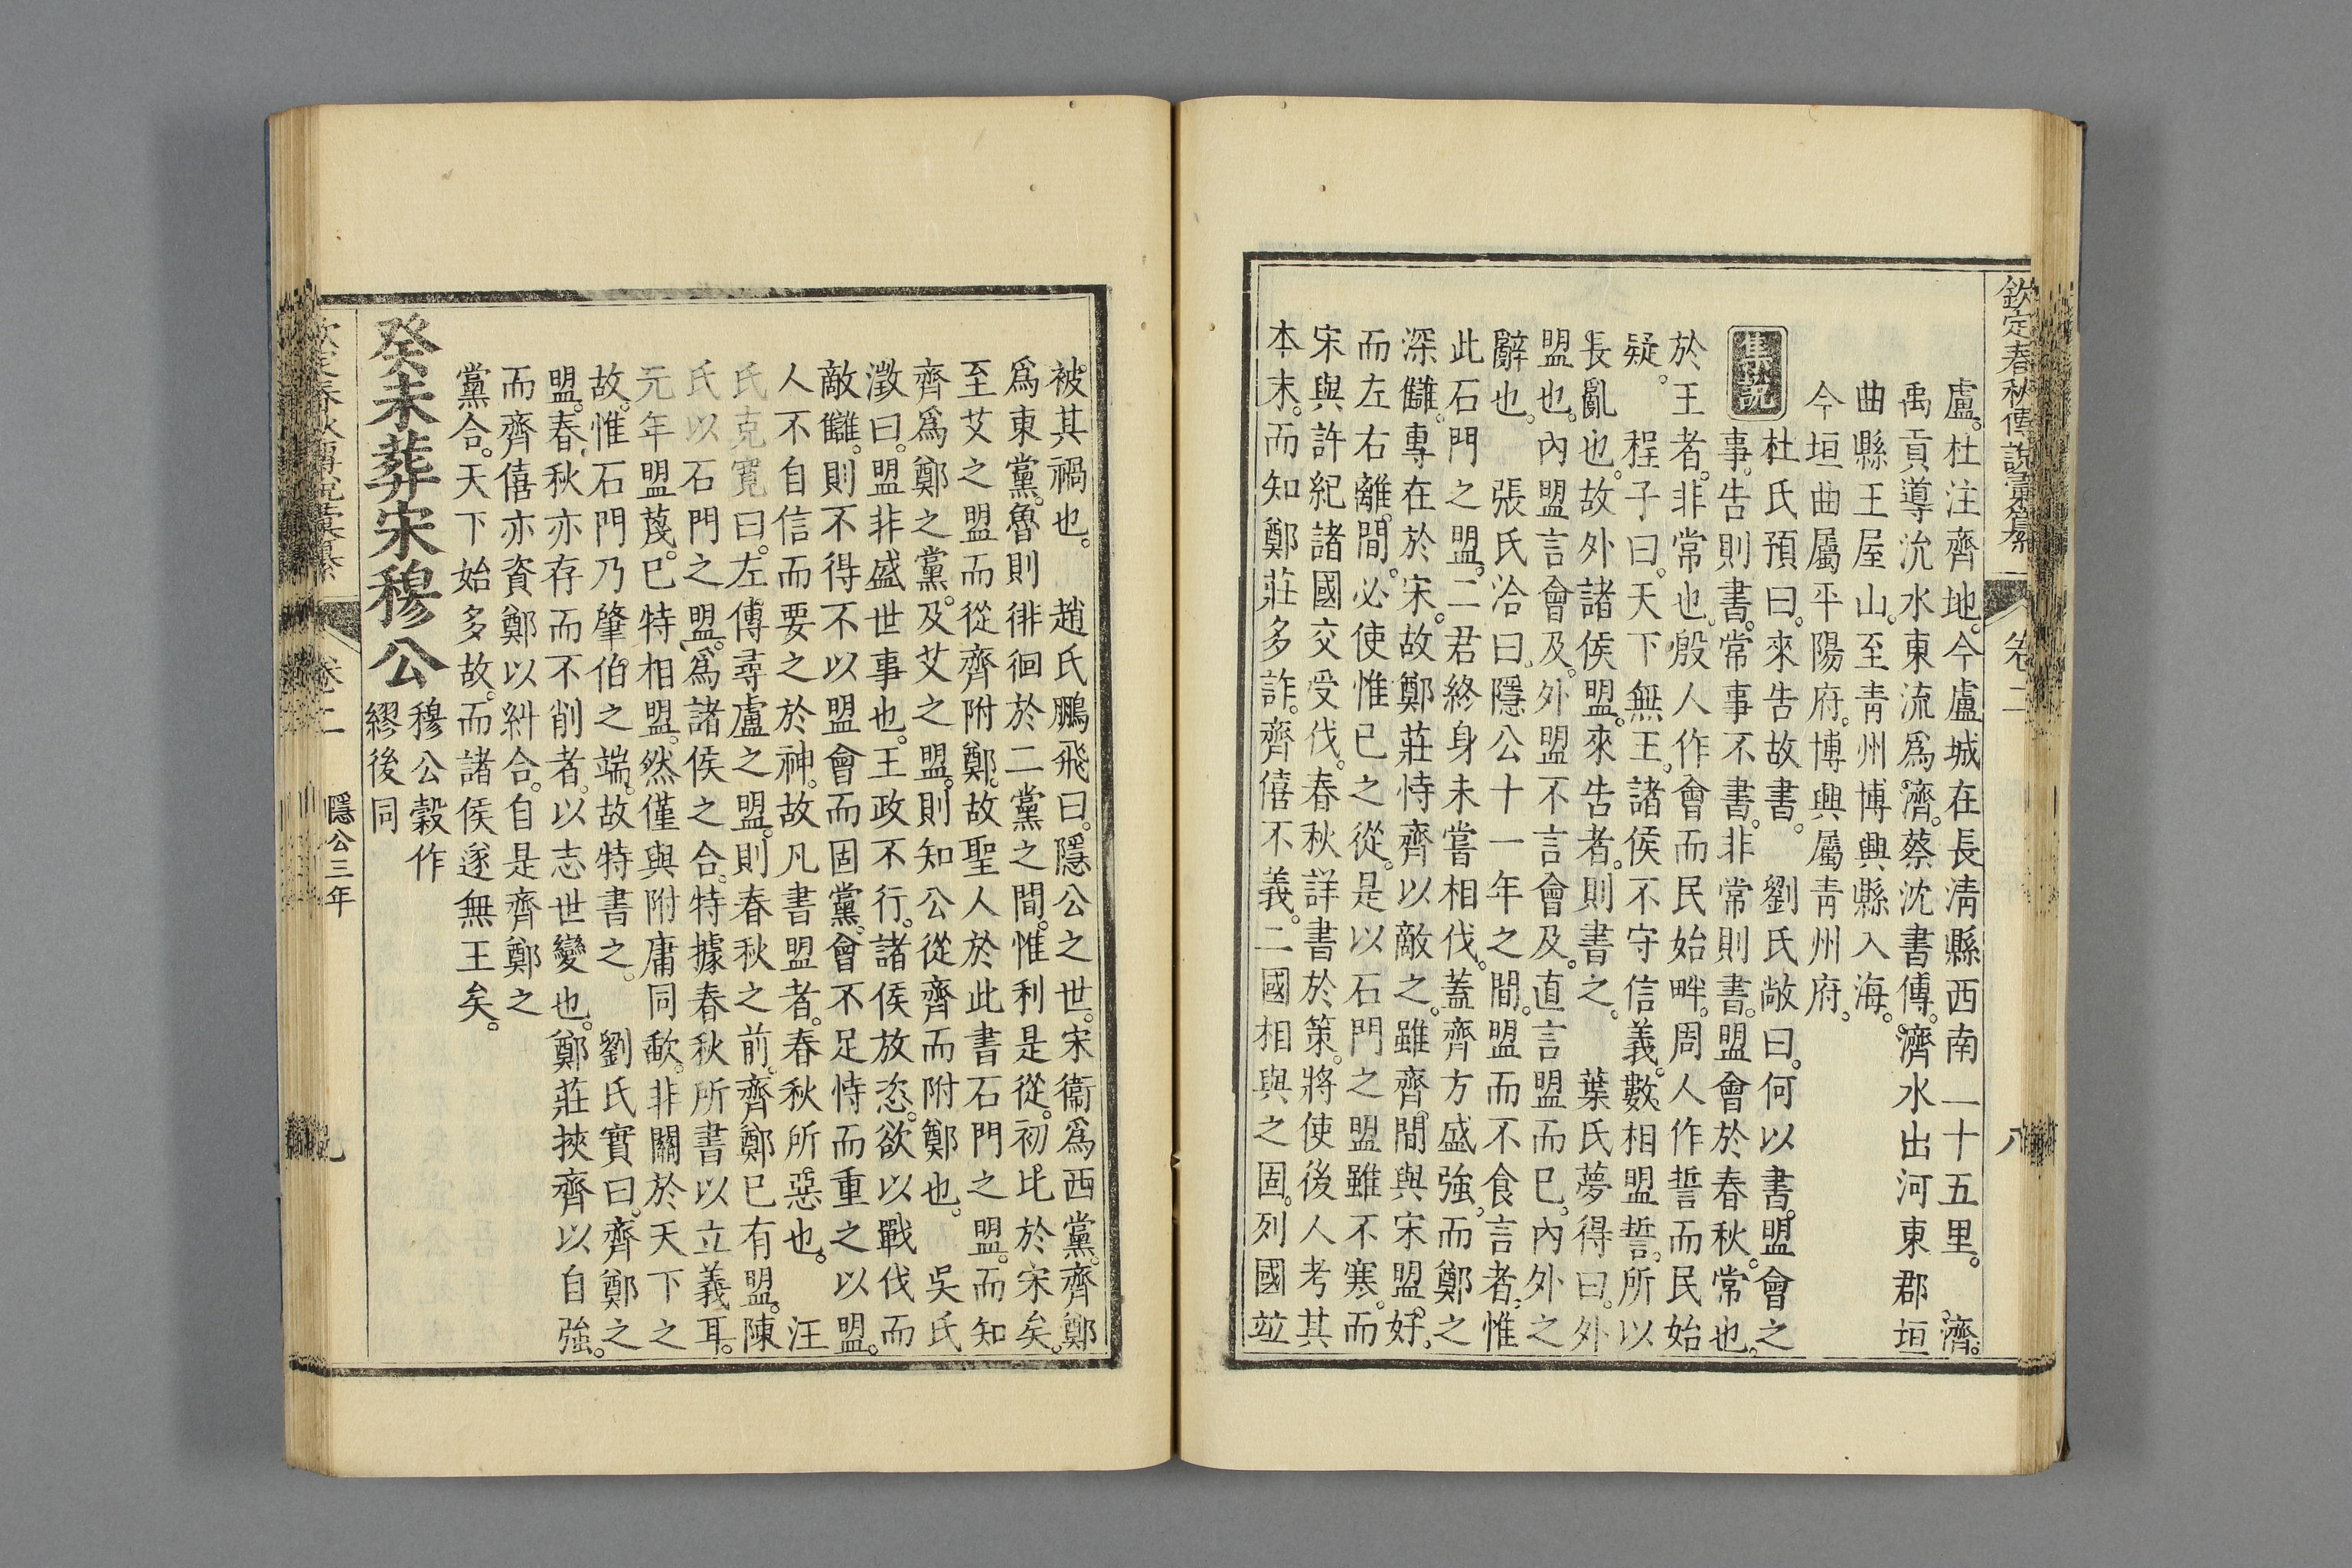 欽定春秋傳說彙纂 卷二 八
盧。杜注齊地。今盧城在長淸縣西南一十五里。 濟。
禹貢導沇水東流爲濟。蔡沈書傳。濟水出河東郡垣
曲縣王屋山。至靑州博興縣入海。
今垣曲屬平陽府。博興屬靑州府。
集說
杜氏預曰。來告故書。 劉氏敞曰。何以書。盟會之
事。告則書。常事不書。非常則書。盟會於春秋。常也。
於王者。非常也。殷人作會而民始畔。周人作誓而民始
疑。 程子曰。天下無王。諸侯不守信義。數相盟誓。所以
長亂也。故外諸侯盟。來告者。則書之。 葉氏夢得曰。外
盟也。內盟言會及。外盟不言會及。直言盟而已。內外之
辭也。 張氏洽曰。隱公十一年之間。盟而不食言者。惟
此石門之盟。二君終身未嘗相伐。蓋齊方盛強。而鄭之
深讎。專在於宋。故鄭莊恃齊以敵之。雖齊。間與宋盟。好。
而左右離。間。必使惟已之從。是以石門之盟雖不寒。而
宋與許紀諸國交受伐。春秋詳書於策。將使後人考其
本末。而知鄭莊多詐。齊僖不義。二國相與之固。列國竝
被其禍也。 趙氏鵬飛曰。隱公之世。宋衞爲西黨。齊鄭
爲東黨。魯則徘徊於二黨之間。惟利是從。初比於宋矣。
至艾之盟而從齊附鄭。故聖人於此書石門之盟。而知
齊爲鄭之黨。及艾之盟。則知公從齊而附鄭也。 吳氏
澂曰。盟非盛世事也。王政不行。諸侯放恣。欲以戰伐而
敵讎。則不得不以盟會而固黨。會不足恃而重之以盟。
人不自信而要之於神。故凡書盟者。春秋所惡也。 汪
氏克寬曰。左傳尋盧之盟。則春秋之前。齊鄭已有盟。陳
氏以石門之盟。爲諸侯之合。特據春秋所書以立義耳。
元年盟蔑。已特相盟。然僅與附庸同歃。非關於天下之
故。惟石門乃肇伯之端。故特書之。 劉氏實曰。齊鄭之
盟。春秋亦存而不削者。以志世變也。鄭莊挾齊以自強。
而齊僖亦資鄭以糾合。自是齊鄭之
黨合。天下始多故。而諸侯遂無王矣。
癸未葬宋穆公 穆公穀作
繆後同
卷二 隱公三年 九